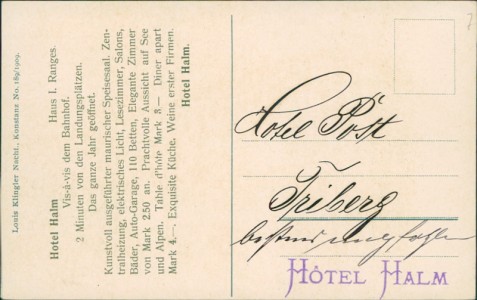 Hotel Halm Haus I. Ranges.
Vis-à-vis dem Bahnhof.
2 Minuten von den Landungsplätzen.
Das ganze Jahr geöffnet.
Kunstvoll ausgeführter maurischer Speisesaal. Zen-
tralheizung, elektrisches Licht, Lesezimmer, Salons,
Bäder, Auto-Garage, 110 Betten, Elegante Zimmer
von Mark 2.50 an. Prachtvolle Aussicht auf See
und Alpen. Table d'hôte Mark 3.— Diner apart
Mark 4.—. Exquisite Küche. Weine erster Firmen.
Hotel Halm.
Louis Klingler Nachf., Konstanz No. 189/1909.
Hotel Post
Triberg
bestens empfohlen
HÔTEL HALM
7